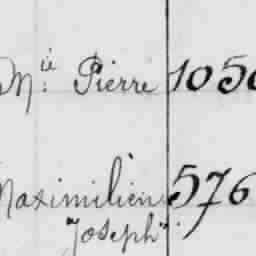 Mie Pierre 105
Maximilien 576
"Joseph".